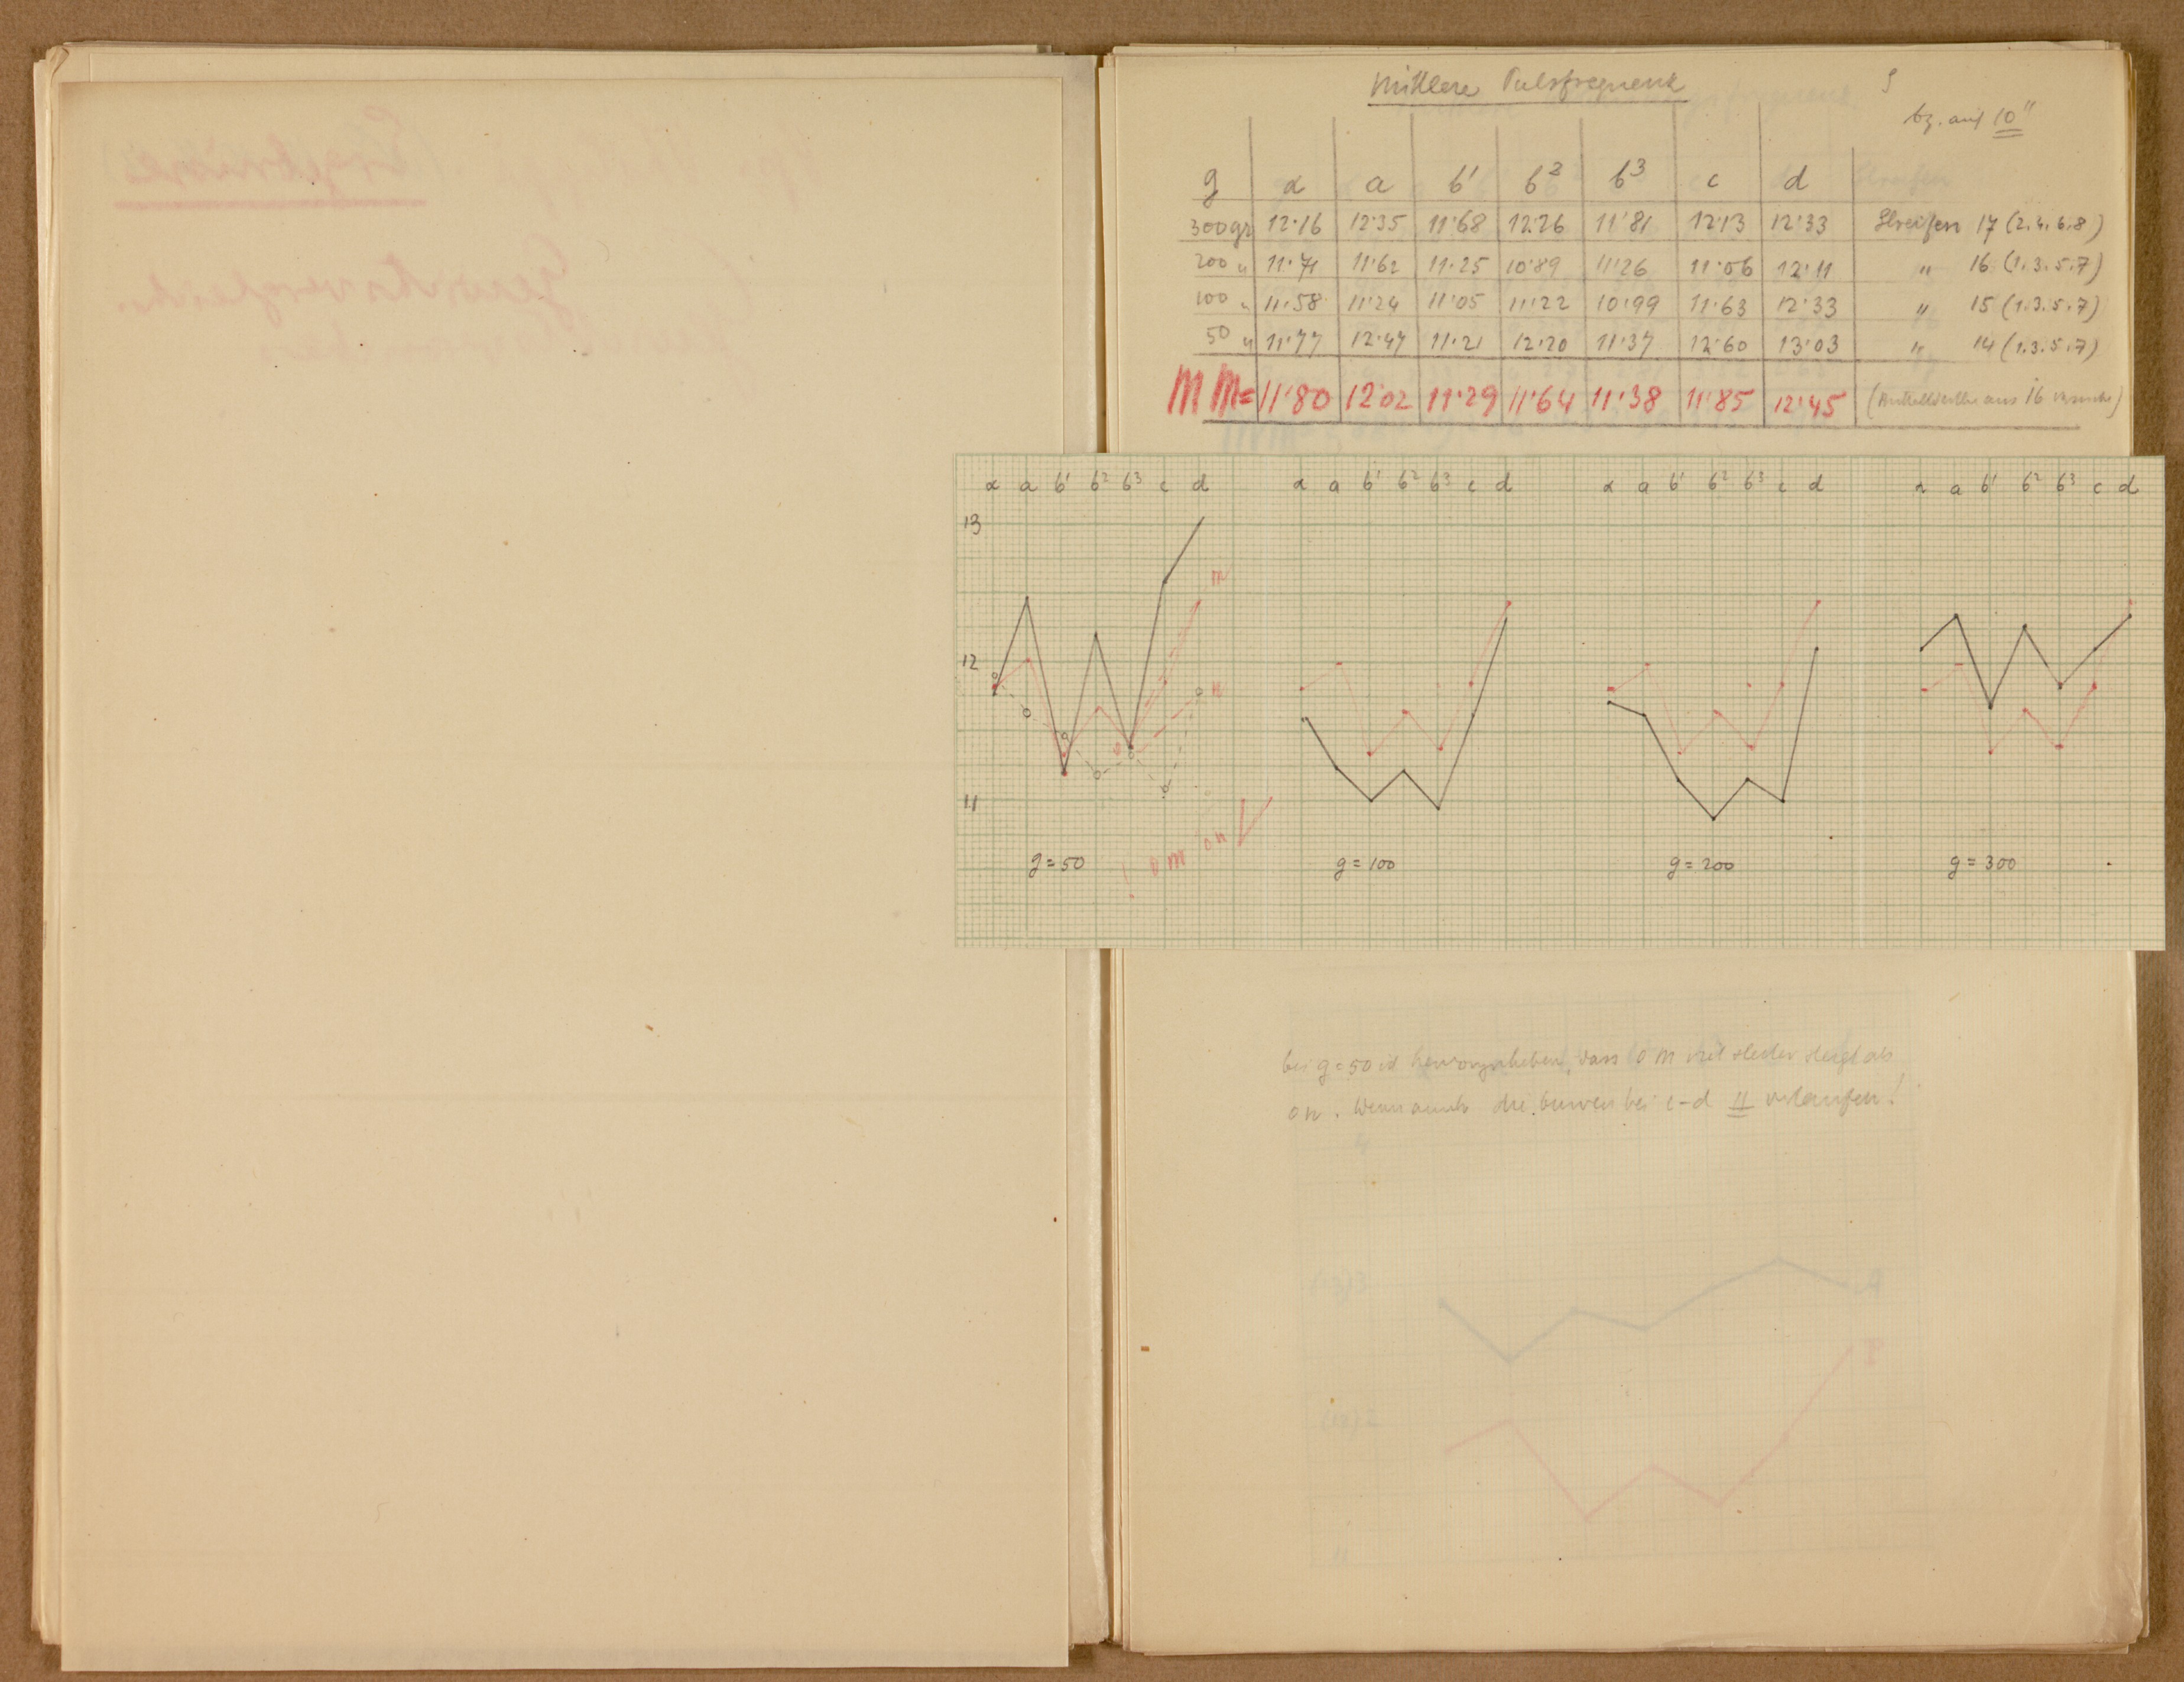 Mittlere Pulsfrequenz
bz. auf 10"
g α a b¹ b² b³ c d
300gr 12·16 12·35 11·68 12·26 11·81 12·13 12·33 Streifen 17 (2.4.6.8)
200 " 11·71 11·62 11·25 10·89 11·26 11·06 12·11 " 16 (1.3.5.7)
100 " 11·58 11·24 11·05 11·22 10·99 11·63 12·33 " 15 (1.3.5.7)
50 " 11·77 12·47 11·21 12·20 11·37 12·60 13·03 " 14 (1.3.5.7)
M M= 11·80 12·02 11·29 11·64 11·38 11·85 12·45 (Mittelwerthe aus 16 Versuche)
α a b¹ b² b³ c d α a b¹ b² b³ c d α a b¹ b² b³ c d α a b¹ b² b³ c d
13
m
12
n
o
11
! om on
g=50 g=100 g=200 g=300
bei g=50 ist hervorzuheben, dass om viel steiler steigt als
on. Wenn auch die Curven bei c-d || verlaufen!